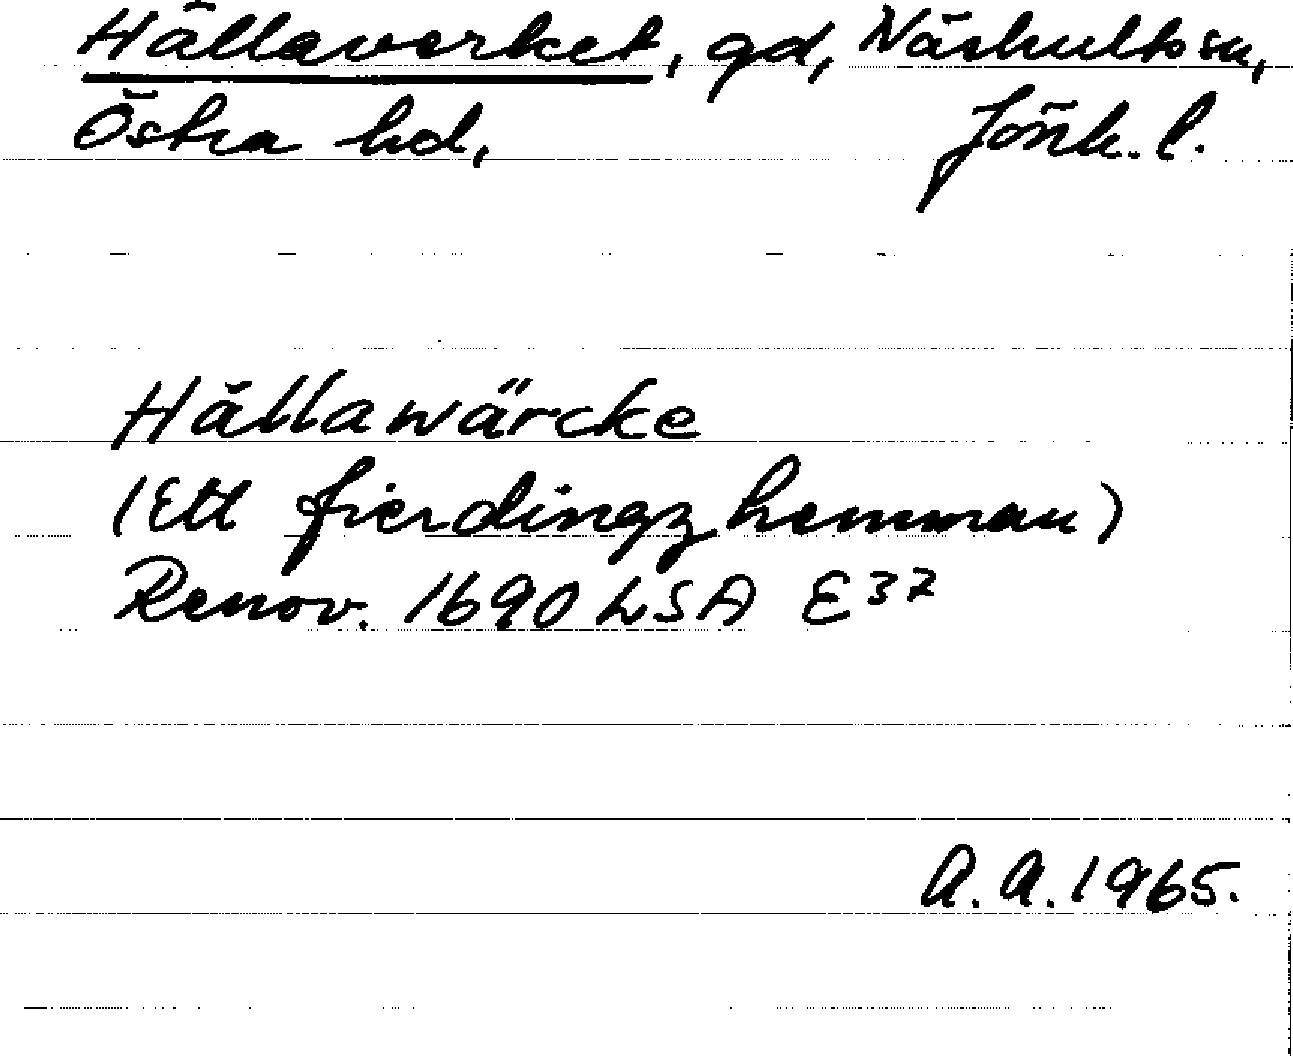 Hällaverket, gd, Näshults sn,
Östra hd, Jönk. l.
Hällawärcke
(Ett fierdingz hemman)
Renov. 1690 LSA E 37
A. A. 1965.